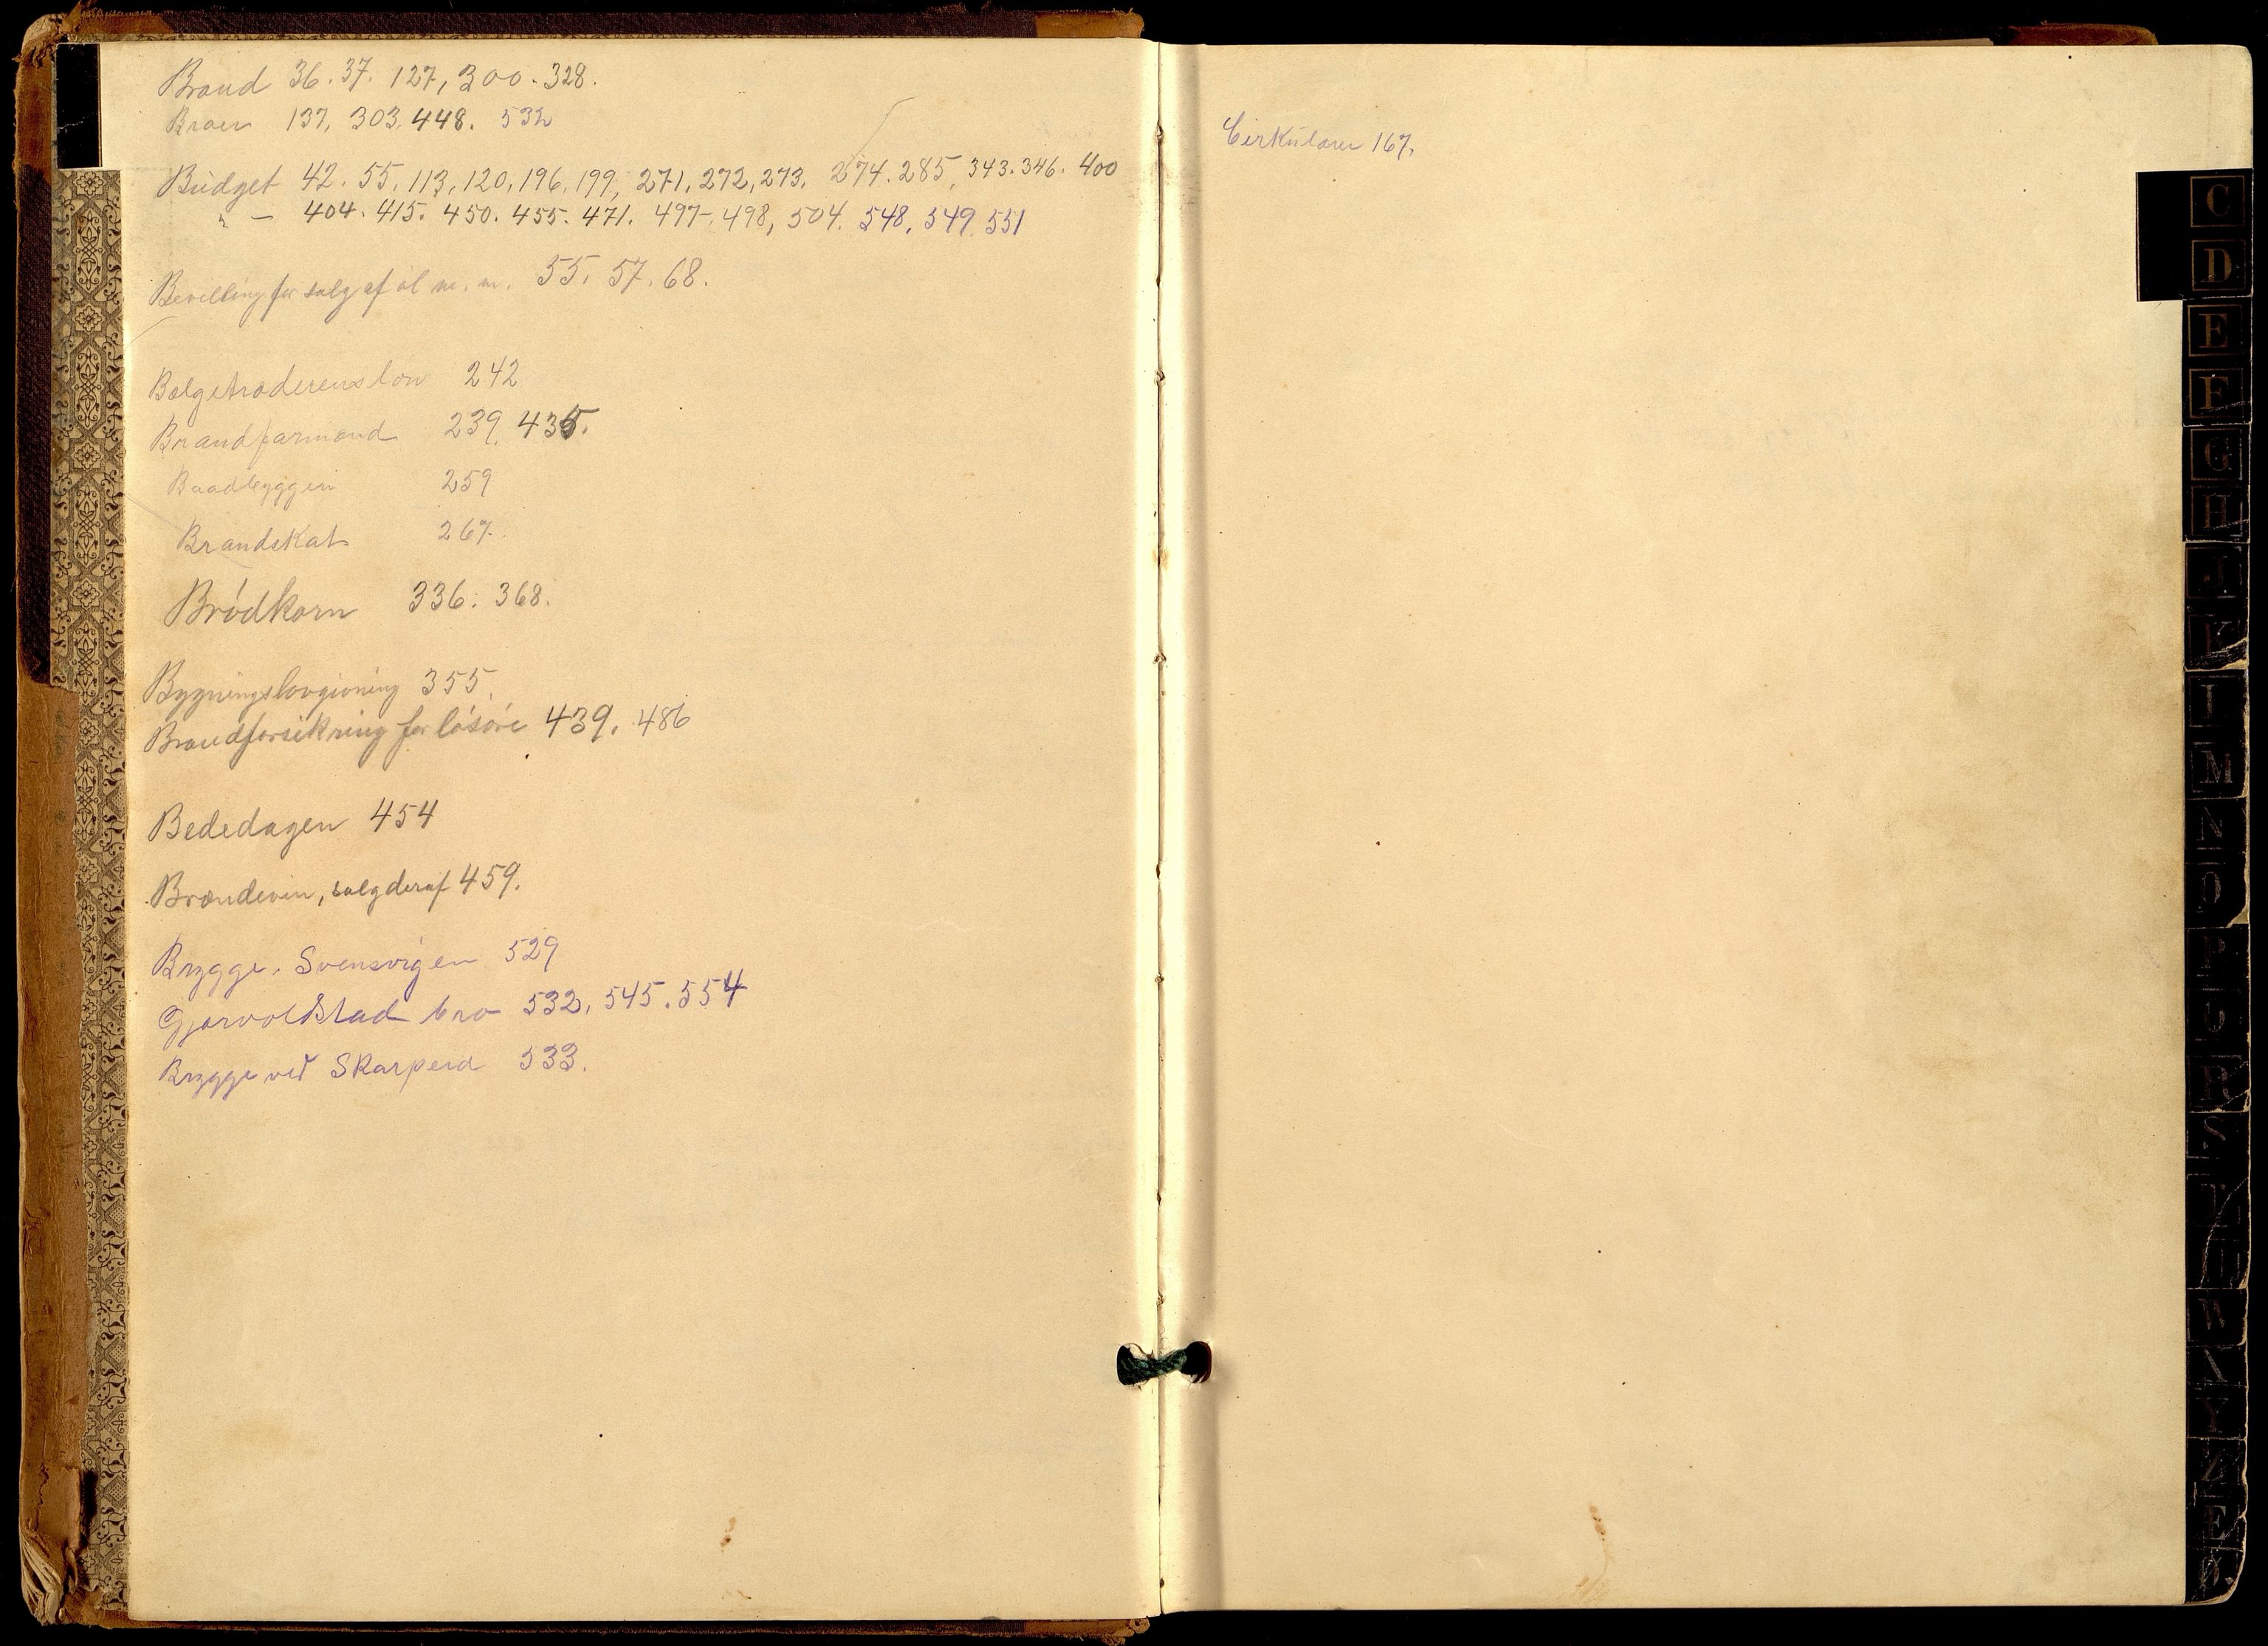 Brand 36. 37. 127, 300. 328.
Broer 137. 303. 448. 532
Budget 42. 55. 113, 120. 196. 199, 271. 272, 273. 274. 285, 343. 346. 400
" — 404. 415. 450. 455. 471. 497, 498, 504. 548, 549. 551
Bevilling for salg af øl m. m. 55. 57. 68.
Bælgetræderens løn 242
Brandformænd 239. 435.
Baadbyggeri 259
Brandskat 267.
Brødkorn 336. 368.
Bygningslovgivning 355.
Brandforsikring for løsøre 439. 486
Bededagen 454
Brændevin, salg deraf 459.
Brygge. Svensvigen 529
Gjervoldstad bro 532, 545. 554
Brygge ved Skarpeid 533.
Cirkulærer 167.
C
D
E
F
G
H
J
K
L
M
N
O
P
Q
R
S
T
U
W
X
Y
Z
Æ
Ø